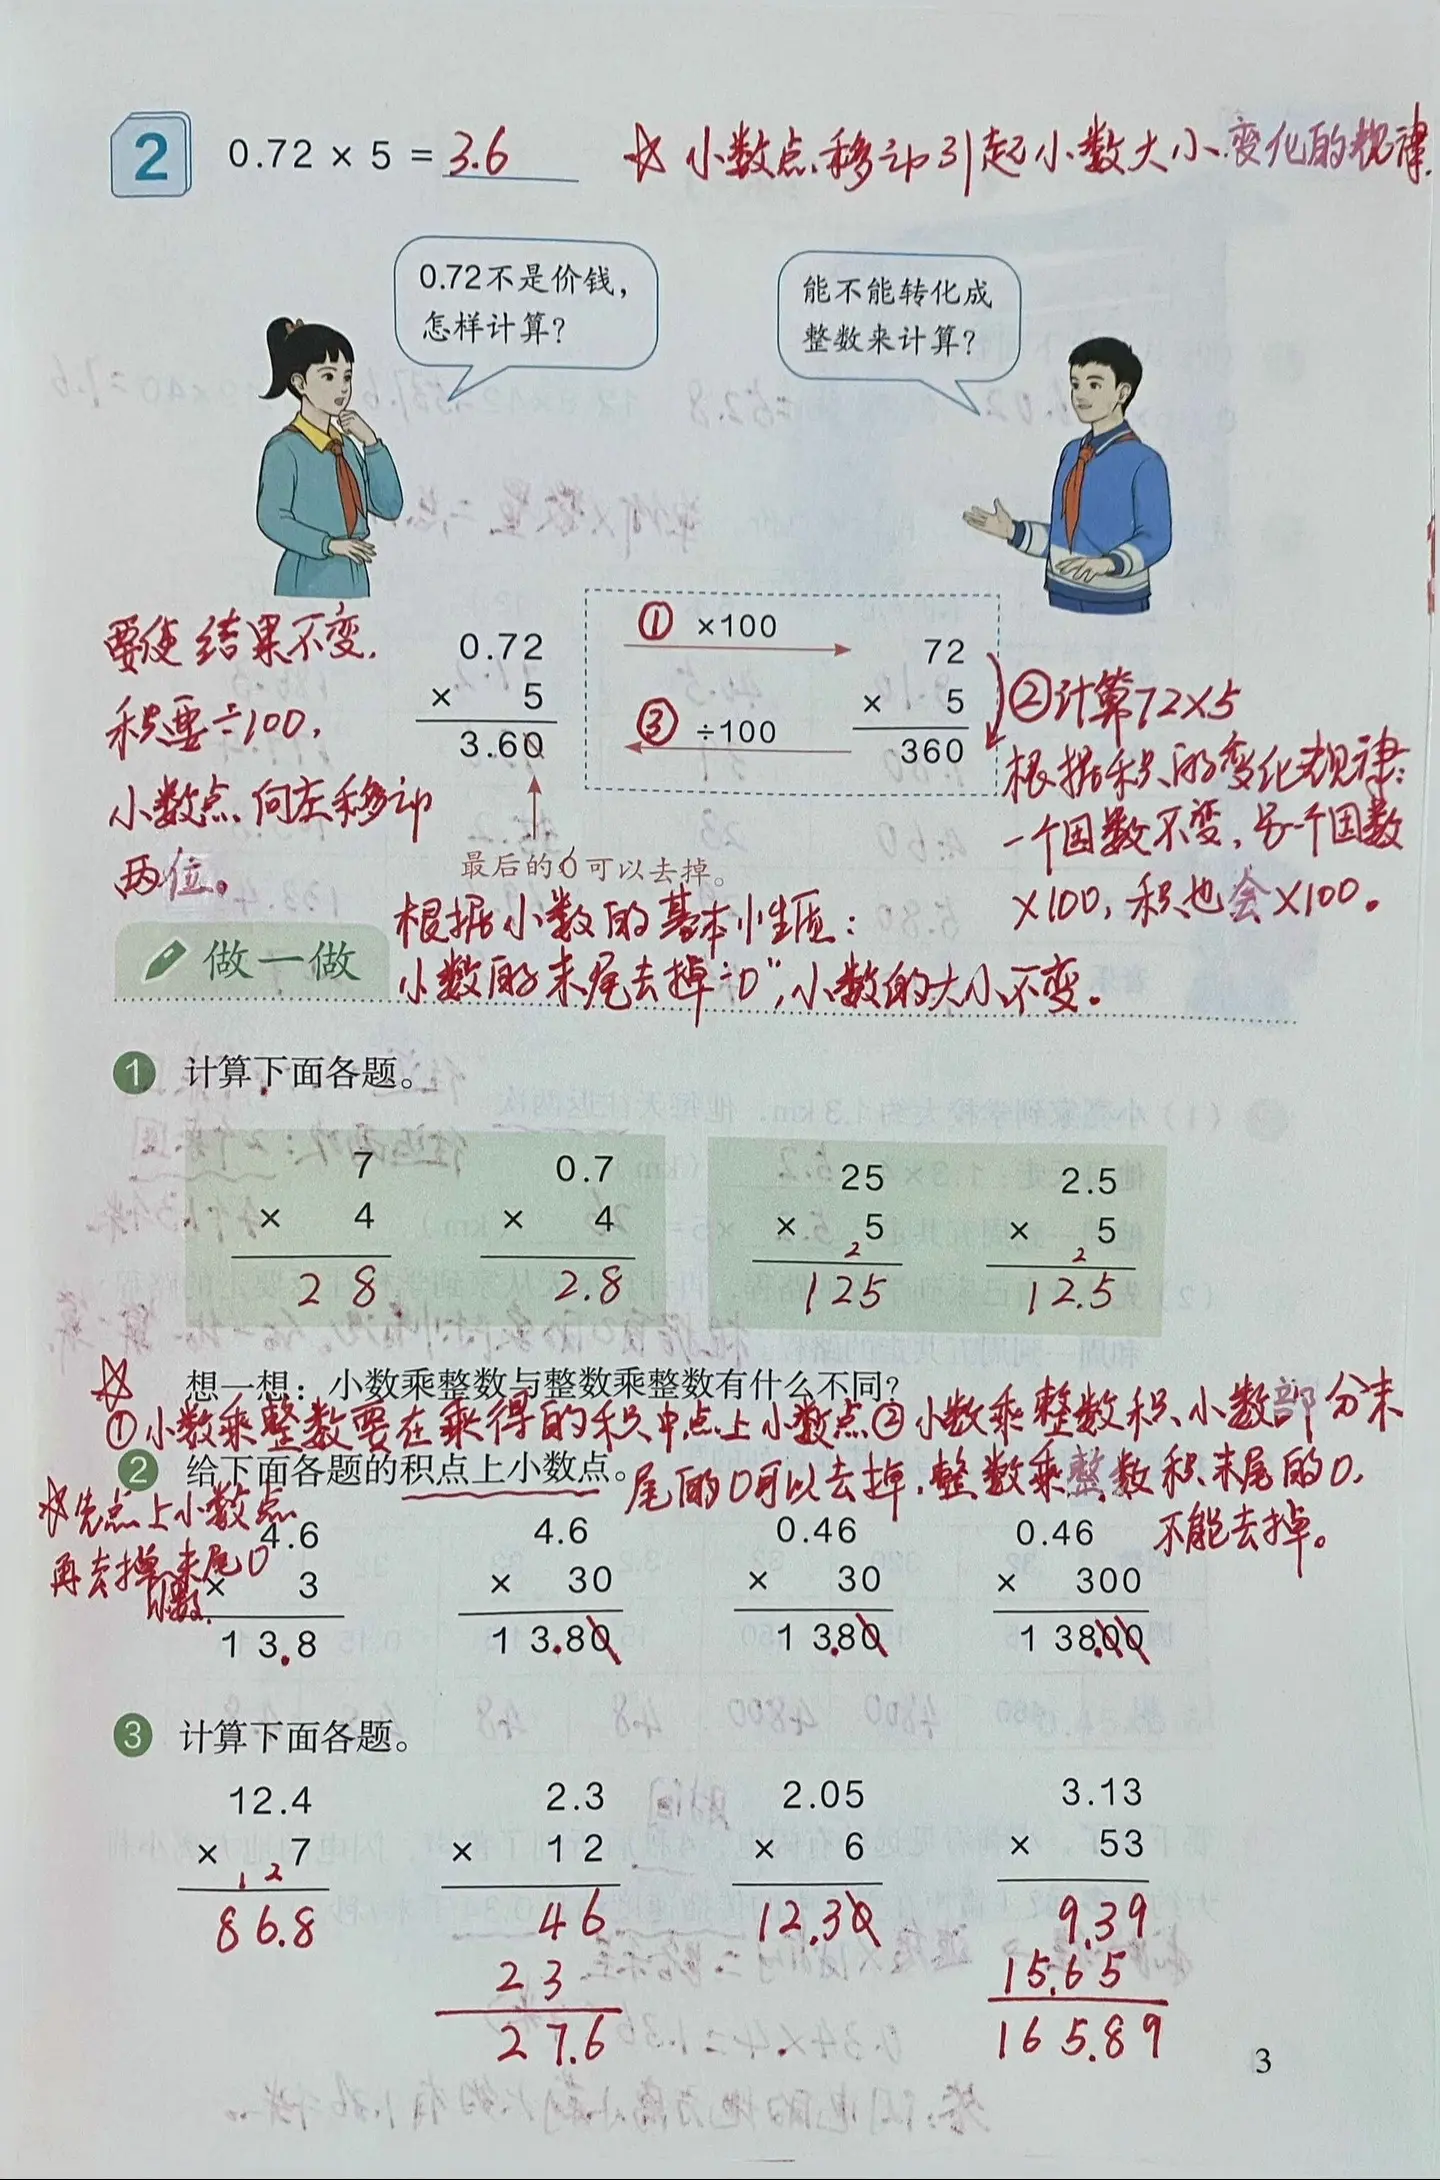 2 0.72 × 5 = 3.6 ☆ 小数点移动引起小数大小变化的规律.
0.72不是价钱，
怎样计算？
能不能转化成
整数来计算？
要使结果不变,
积要÷100,
小数点向左移动
两位。
0.72
× 5
3.60
① ×100
③ ÷100
72
× 5
360
②计算72×5
根据积的变化规律:
一个因数不变, 另一个因数
×100, 积也会×100。
最后的0可以去掉。
根据小数的基本性质:
小数的末尾去掉“0”, 小数的大小不变.
做一做
1 计算下面各题。
7
× 4
28
0.7
× 4
2.8
25
× 5
2
125
2.5
× 5
2
12.5
☆ 想一想：小数乘整数与整数乘整数有什么不同？
①小数乘整数要在乘得的积中点上小数点②小数乘整数积小数部分末
尾的0可以去掉, 整数乘整数积末尾的0,
不能去掉。
2 给下面各题的积点上小数点。
☆先点上小数点
再去掉末尾0
小数.
4.6
× 3
13.8
4.6
× 30
13.80
0.46
× 30
13.80
0.46
× 300
138.00
3 计算下面各题。
12.4
× 7
1 2
86.8
2.3
× 12
46
23
27.6
2.05
× 6
12.30
3.13
× 53
9.39
15.65
165.89
3